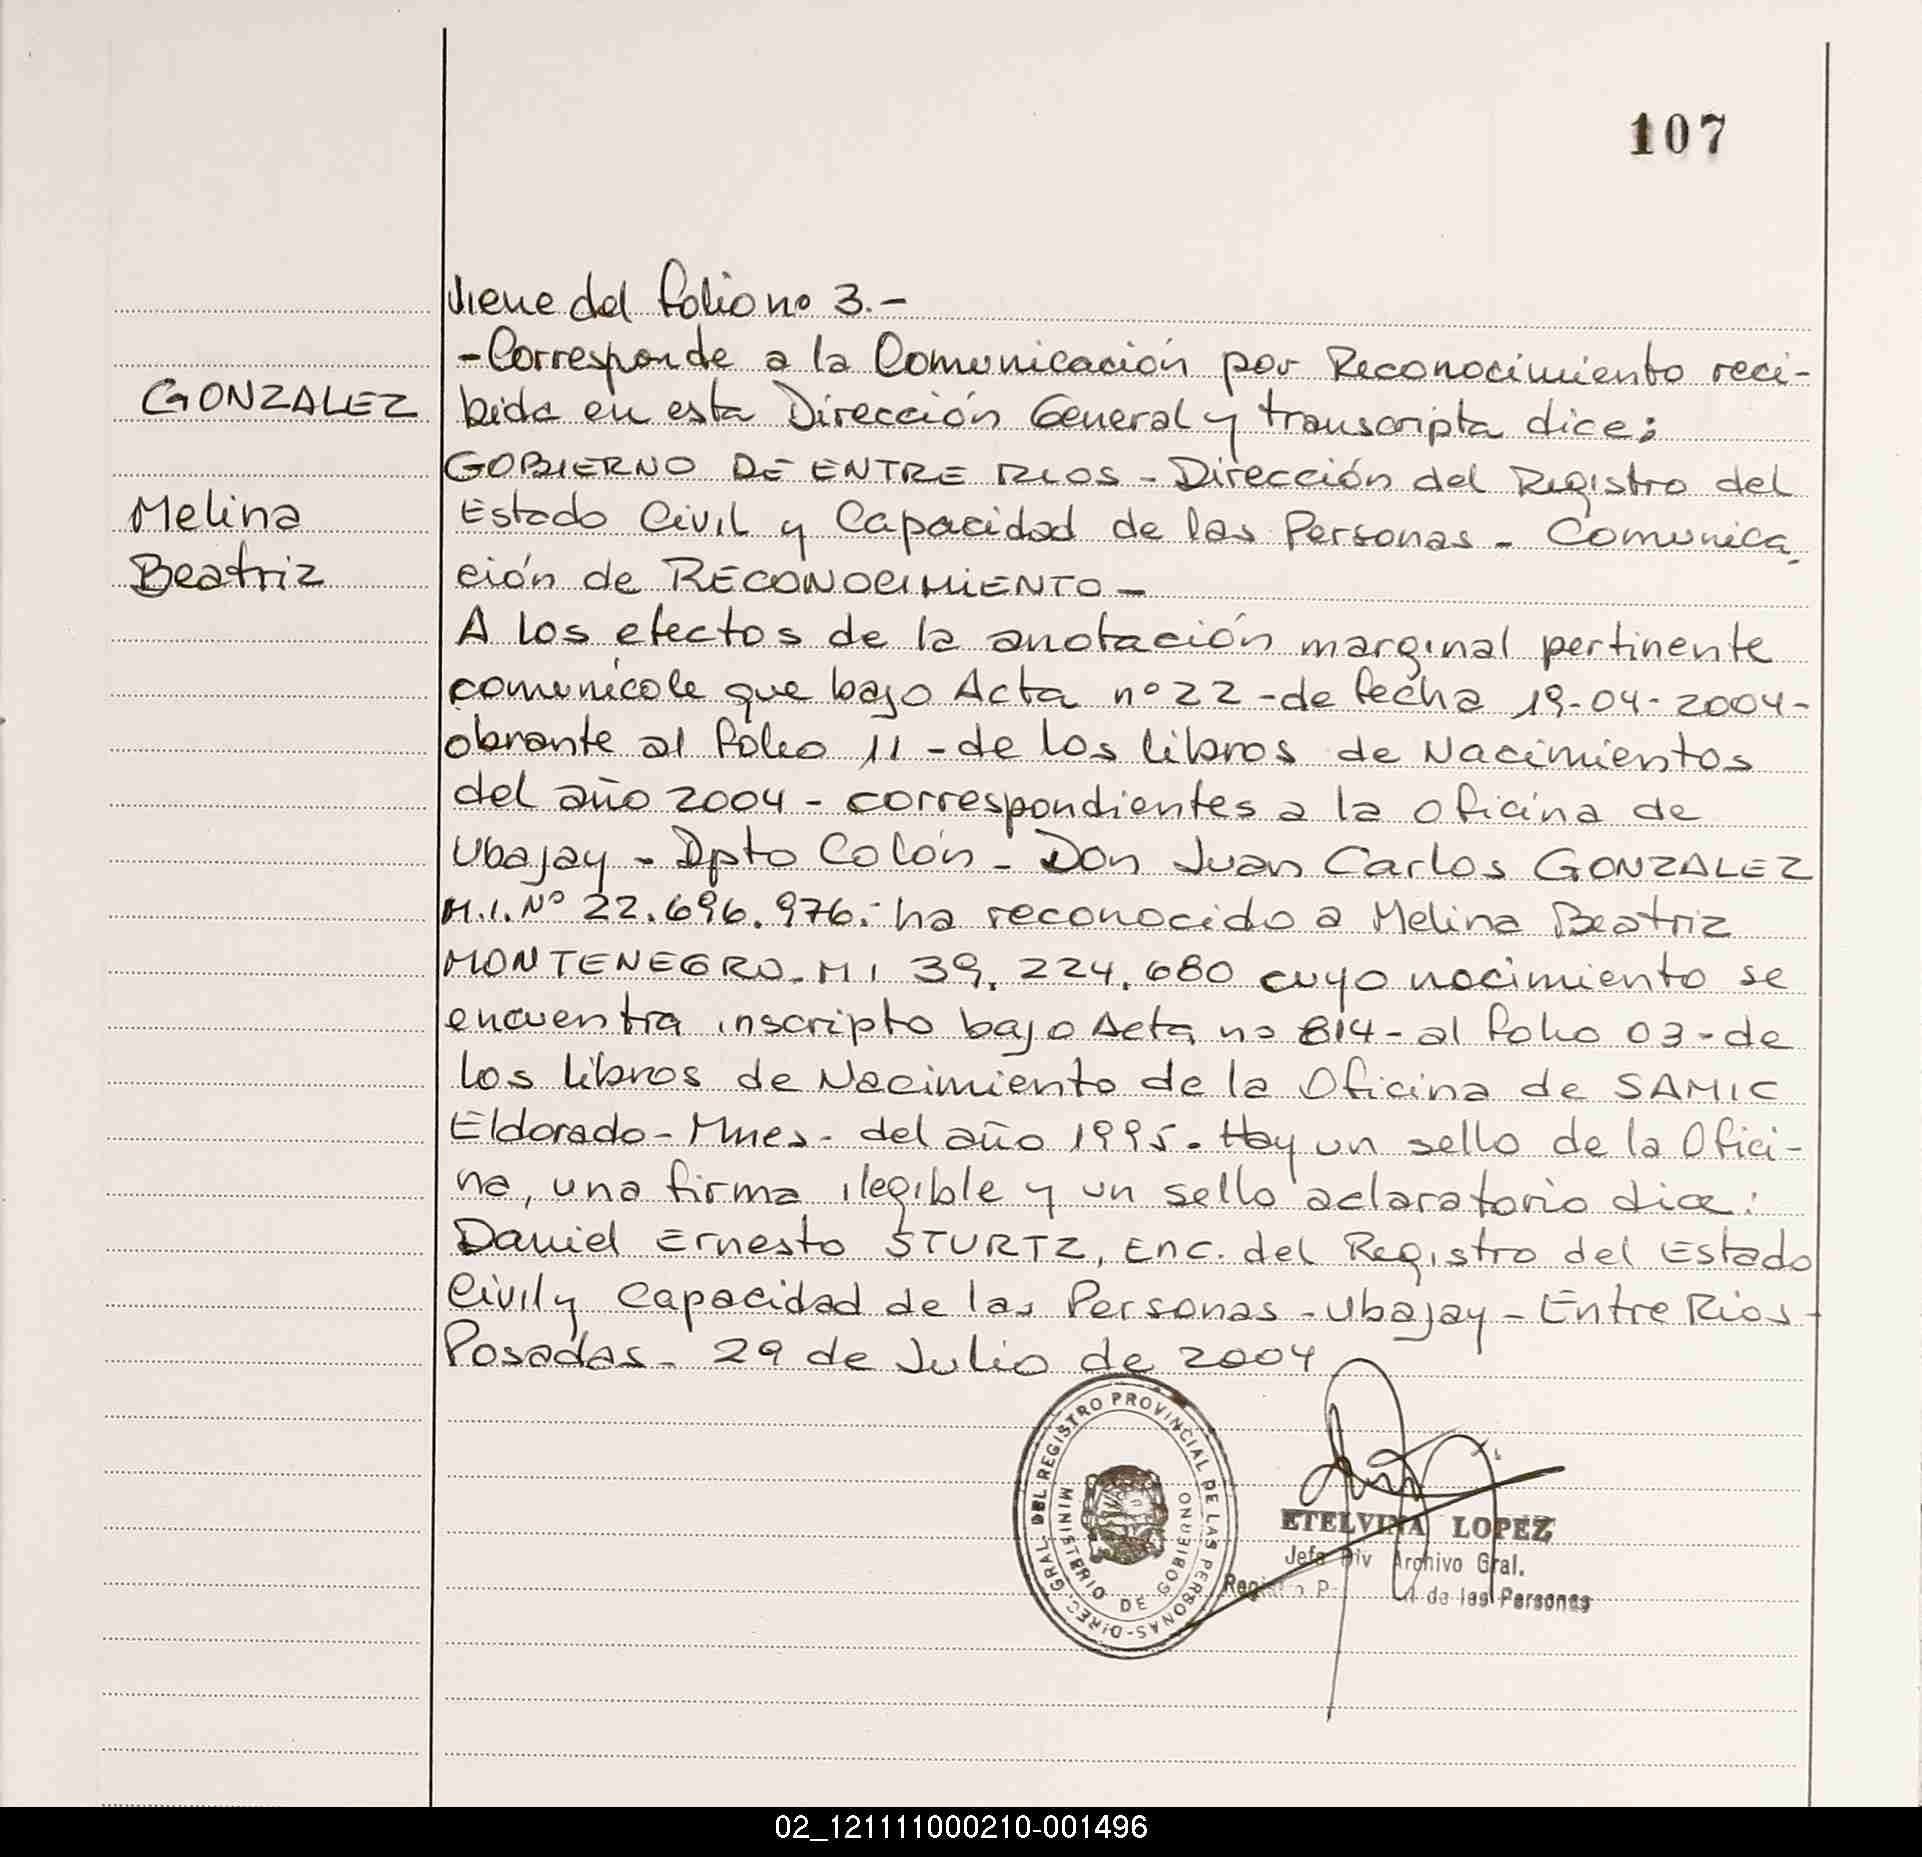 107
Viene del folio nº 3.-
-Corresponde a la Comunicación por Reconocimiento reci-
GONZALEZ
bida en esta Dirección General y transcripta dice:
GOBIERNO DE ENTRE RIOS - Dirección del Registro del
Melina
Estado Civil y Capacidad de las Personas - Comunica
Beatriz
ción de RECONOCIMIENTO -
A los efectos de la anotación marginal pertinente
comunícole que bajo Acta nº 22 - de fecha 19-04-2004-
obrante al folio 11 - de los libros de Nacimientos
del año 2004 - correspondientes a la oficina de
Ubajay - Dpto Colón - Don Juan Carlos GONZALEZ
M.I. Nº 22.696.976.- ha reconocido a Melina Beatriz
MONTENEGRO - M I 39.224.680 cuyo nacimiento se
encuentra inscripto bajo Acta nº 814 - al folio 03 - de
los libros de Nacimiento de la Oficina de SAMIC
Eldorado - Mnes - del año 1995. Hay un sello de la Ofici-
na, una firma ilegible y un sello aclaratorio dice:
Daniel Ernesto STURTZ, Enc. del Registro del Estado
Civil y Capacidad de las Personas - Ubajay - Entre Rios -
Posadas - 29 de Julio de 2004
DIREC. GRAL. DEL REGISTRO PROVINCIAL DE LAS PERSONAS-
MINISTERIO DE GOBIERNO
ETELVINA LOPEZ
Jefa Div Archivo Gral.
Registro de las Personas
02_121111000210-001496